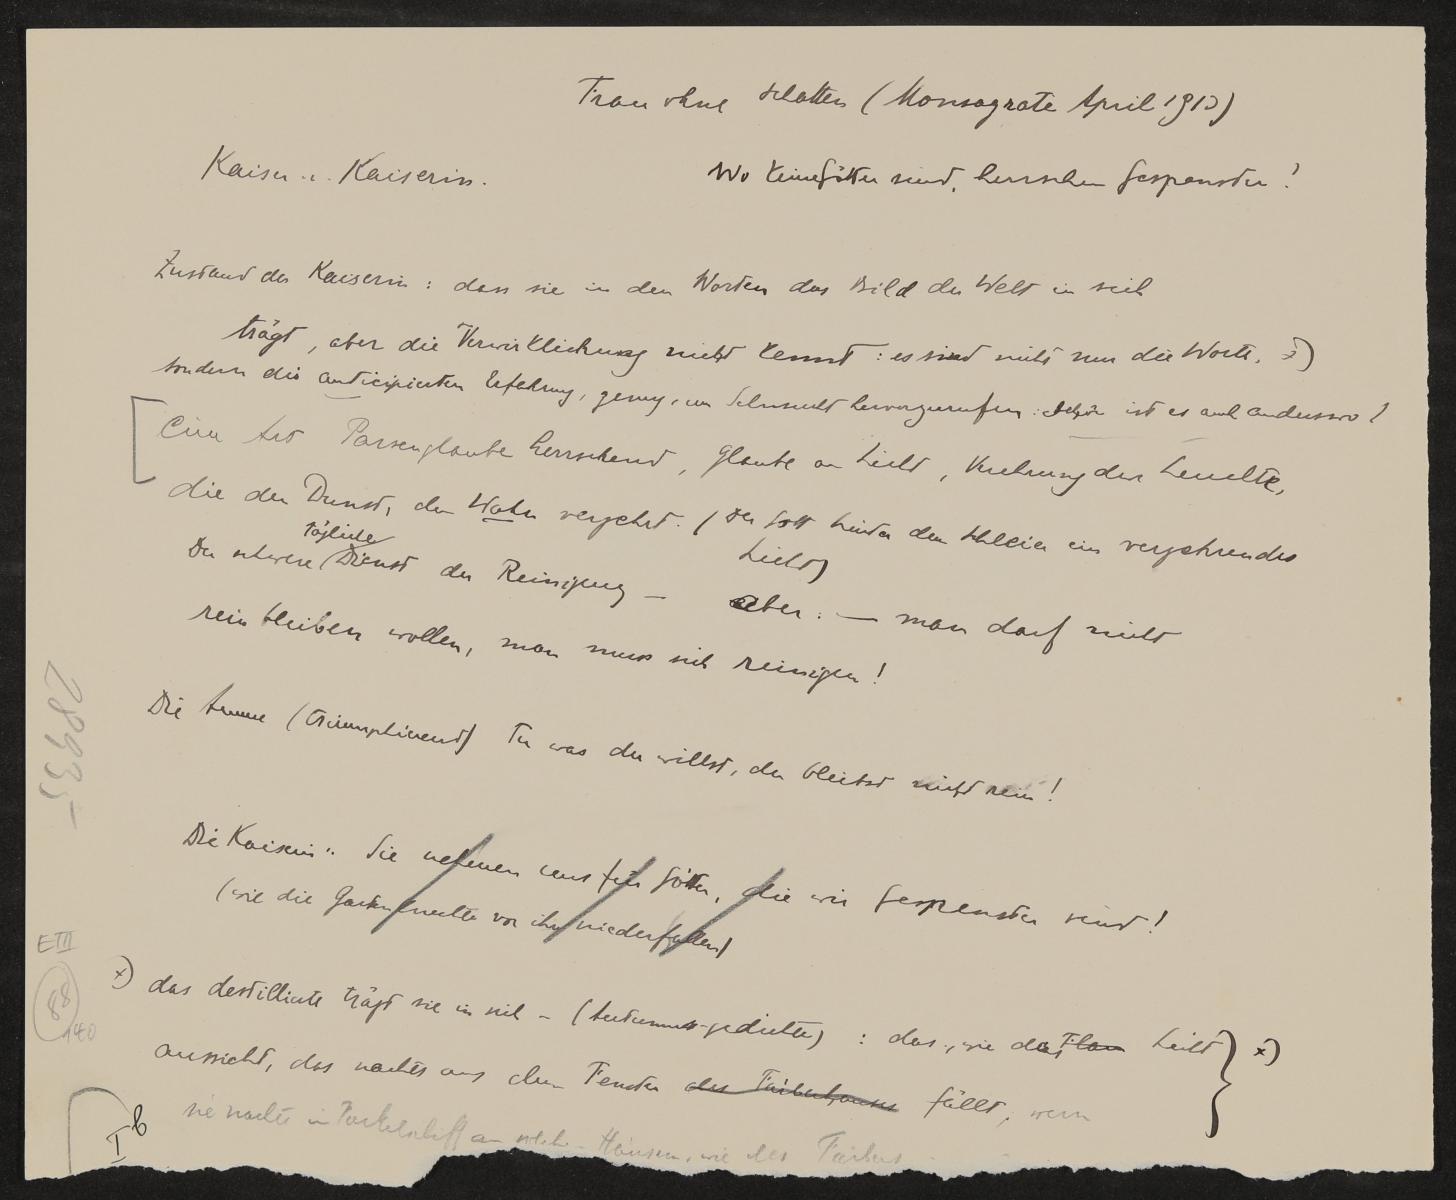 Frau ohne Schatten (Monsagrate April 1913)
Kaiser u. Kaiserin.
Wo keine Götter sind, herrschen Gespenster!
Zustand der Kaiserin: dass sie in den Worten das Bild der Welt in sich
trägt, aber die Verwirklichung nicht kennt: es sind nicht nur die Worte, x)
sondern die anticipierten Erfahrung, genug, um Sehnsucht hervorzurufen: schön ist es auch anderswo!
Eine Art Parsenglaube herrschend, Glaube an Licht, Verehrung der Leuchte,
die den Dunst, den Wahn verzehrt. (Der Gott hinter dem Schleier ein verzehrendes
Licht)
Der schwere tägliche Dienst der Reinigung – aber: – man darf nicht
rein bleiben wollen, man muss sich reinigen!
Die Amme (triumphierend) Tu was du willst, du bleibst nicht rein!
Die Kaiserin: Sie nehmen uns für Götter, die wir Gespenster sind!
(wie die Gartenknechte vor ihr niederfallen)
x) das destillierte trägt sie in sich – : das, wie das Licht x)
aussieht, das nachts aus dem Fenster des Färberhauses fällt, wenn
sie nachts in an Häusern, wie des Färbers
28935
EIII
88
140
I b